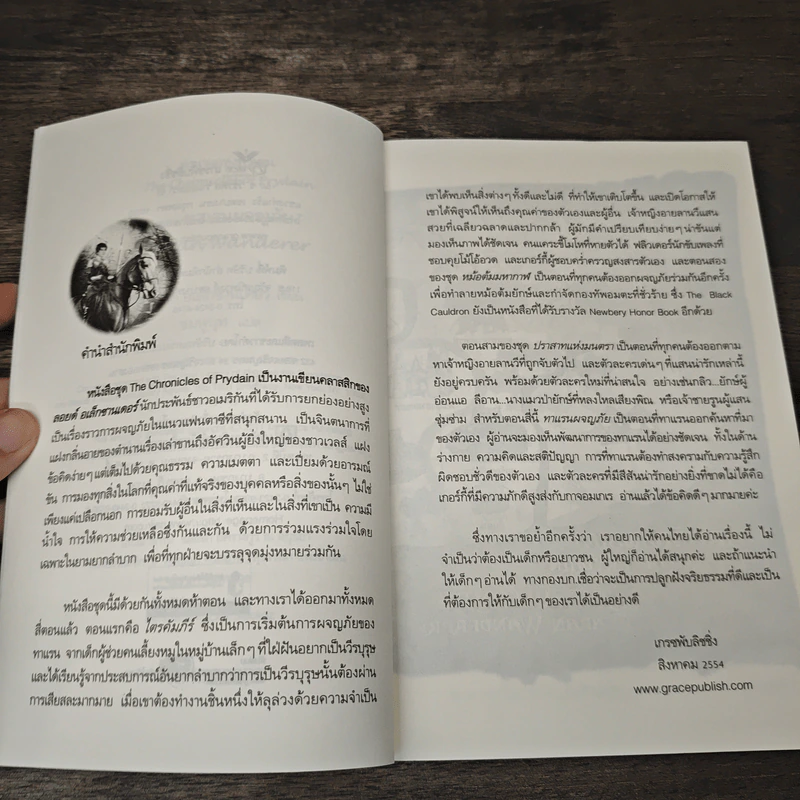 คำนำสำนักพิมพ์
หนังสือชุด The Chronicles of Prydain เป็นงานเขียนคลาสสิกของ
ลอยด์ อเล็กซานเดอร์ นักประพันธ์ชาวอเมริกันที่ได้รับการยกย่องอย่างสูง
เป็นเรื่องราวการผจญภัยในแนวแฟนตาซีที่สนุกสนาน เป็นจินตนาการที่
แฝงกลิ่นอายของตำนานเรื่องเล่าขานถึงอัศวินผู้ยิ่งใหญ่ของชาวเวลส์ แฝง
ข้อคิดง่ายๆ แต่เต็มไปด้วยคุณธรรม ความเมตตา และเปี่ยมด้วยอารมณ์
ขัน การมองทุกสิ่งในโลกที่คุณค่าที่แท้จริงของบุคคลหรือสิ่งของนั้นๆ ไม่ใช่
เพียงแค่เปลือกนอก การยอมรับผู้อื่นในสิ่งที่เห็นและในสิ่งที่เขาเป็น ความมี
น้ำใจ การให้ความช่วยเหลือซึ่งกันและกัน ด้วยการร่วมแรงร่วมใจโดย
เฉพาะในยามยากลำบาก เพื่อที่ทุกฝ่ายจะบรรลุจุดมุ่งหมายร่วมกัน
หนังสือชุดนี้มีด้วยกันทั้งหมดห้าตอน และทางเราได้ออกมาทั้งหมด
สี่ตอนแล้ว ตอนแรกคือ ไตรคัมภีร์ ซึ่งเป็นการเริ่มต้นการผจญภัยของ
ทาแรน จากเด็กผู้ช่วยคนเลี้ยงหมูในหมู่บ้านเล็กๆ ที่ใฝ่ฝันอยากเป็นวีรบุรุษ
และได้เรียนรู้จากประสบการณ์อันยากลำบากว่าการเป็นวีรบุรุษนั้นต้องผ่าน
การเสียสละมากมาย เมื่อเขาต้องทำงานชิ้นหนึ่งให้ลุล่วงด้วยความจำเป็น
เขาได้พบเห็นสิ่งต่างๆ ทั้งดีและไม่ดี ที่ทำให้เขาเติบโตขึ้น และเปิดโอกาสให้
เขาได้พิสูจน์ให้เห็นถึงคุณค่าของตัวเองและผู้อื่น เจ้าหญิงอายลานวีแสน
สวยที่เฉลียวฉลาดและปากกล้า ผู้มักมีคำเปรียบเทียบง่ายๆ น่าขันแต่
มองเห็นภาพได้ชัดเจน คนแคระขี้โมโหที่หายตัวได้ ฟลิวเดอร์นักขับเพลงที่
ชอบคุยโม้โอ้อวด และเกอร์กี้ผู้ชอบคร่ำครวญสงสารตัวเอง และตอนสอง
ของชุด หม้อต้มมหากาฬ เป็นตอนที่ทุกคนต้องออกผจญภัยร่วมกันอีกครั้ง
เพื่อทำลายหม้อต้มยักษ์และกำจัดกองทัพอมตะที่ชั่วร้าย ซึ่ง The Black
Cauldron ยังเป็นหนังสือที่ได้รับรางวัล Newbery Honor Book อีกด้วย
ตอนสามของชุด ปราสาทแห่งมนตรา เป็นตอนที่ทุกคนต้องออกตาม
หาเจ้าหญิงอายลานวีที่ถูกจับตัวไป และตัวละครเด่นๆ ที่แสนน่ารักเหล่านี้
ยังอยู่ครบครัน พร้อมด้วยตัวละครใหม่ที่น่าสนใจ อย่างเช่นกลิว...ยักษ์ผู้
อ่อนแอ ลีอาน...นางแมวป่ายักษ์ที่หลงใหลเสียงพิณ หรือเจ้าชายรูนผู้แสน
ซุ่มซ่าม สำหรับตอนสี่นี้ ทาแรนผจญภัย เป็นตอนที่ทาแรนออกค้นหาที่มา
ของตัวเอง ผู้อ่านจะมองเห็นพัฒนาการของทาแรนได้อย่างชัดเจน ทั้งในด้าน
ร่างกาย ความคิดและสติปัญญา การที่ทาแรนต้องทำสงครามกับความรู้สึก
ผิดชอบชั่วดีของตัวเอง และตัวละครที่มีสีสันน่ารักอย่างยิ่งที่ขาดไม่ได้คือ
เกอร์กี้ที่มีความภักดีสูงส่งกับกาจอมเกเร อ่านแล้วได้ข้อคิดดีๆ มากมายค่ะ
ซึ่งทางเราขอย้ำอีกครั้งว่า เราอยากให้คนไทยได้อ่านเรื่องนี้ ไม่
จำเป็นว่าต้องเป็นเด็กหรือเยาวชน ผู้ใหญ่ก็อ่านได้สนุกค่ะ และถ้าแนะนำ
ให้เด็กๆ อ่านได้ ทางกองบก.เชื่อว่าจะเป็นการปลูกฝังจริยธรรมที่ดีและเป็น
ที่ต้องการให้กับเด็กๆ ของเราได้เป็นอย่างดี
เกรซพับลิชชิ่ง
สิงหาคม 2554
www.gracepublish.com